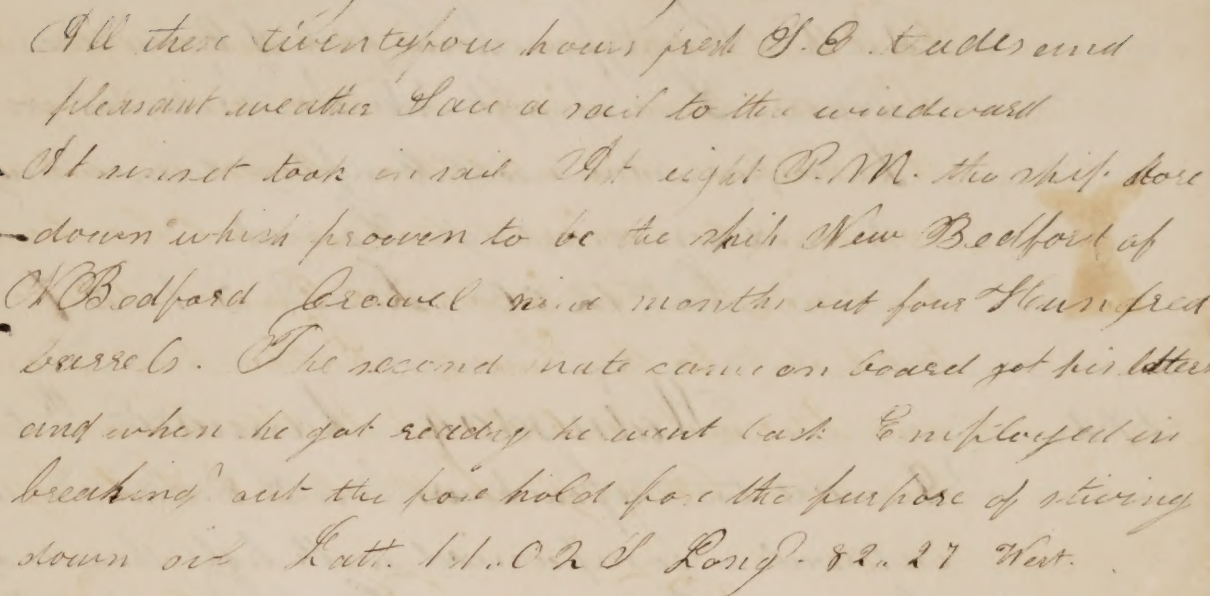 All these twentyfour hours fresh S.E. trades and
pleasant weather Saw a sail to the windward
At sunset took in sail At eight P.M. the ship bore
down which prooven to be the ship New Bedford of
N Bedford Crowel nine months out four Hundred
barrels. The second mate came on board got his letters
and when he got ready he went back Employed in
breaking out the fore hold for the purpose of stiwing
down oil Latt. 11..02 S Long. 82..27 West.